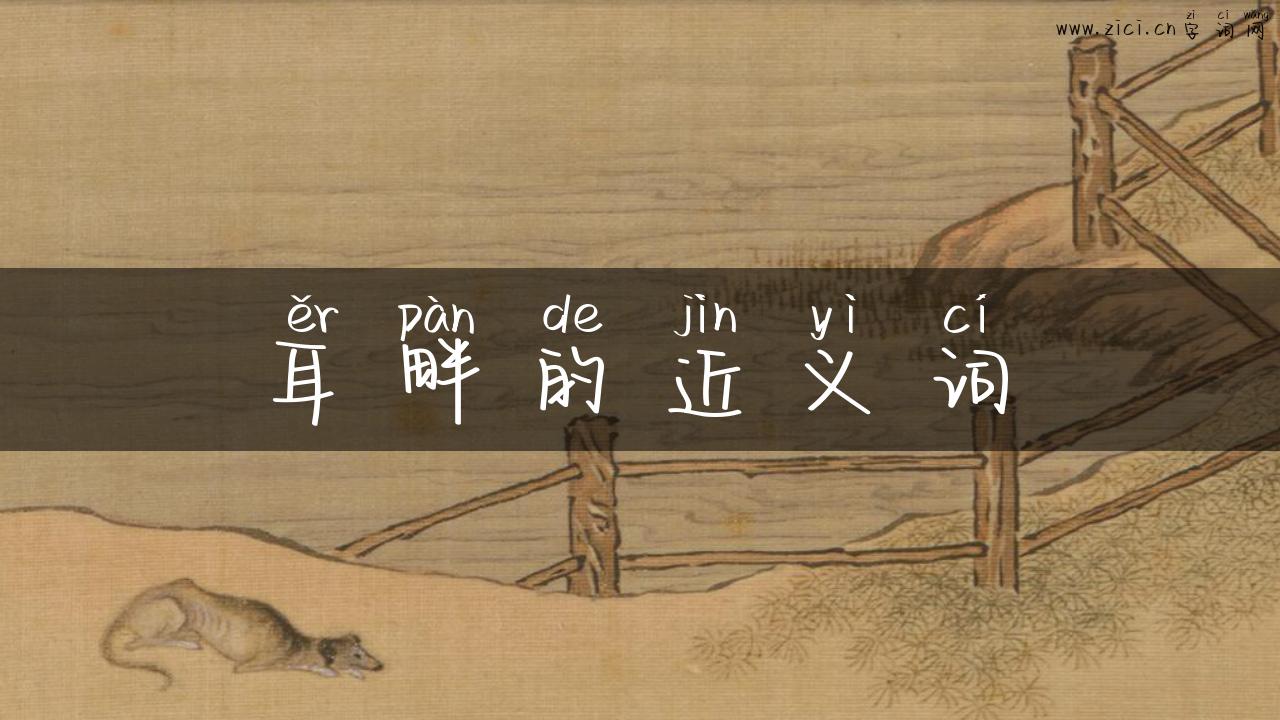 zì cí wǎng
www.zici.cn 字词网
ěr pàn de jìn yì cí
耳畔的近义词